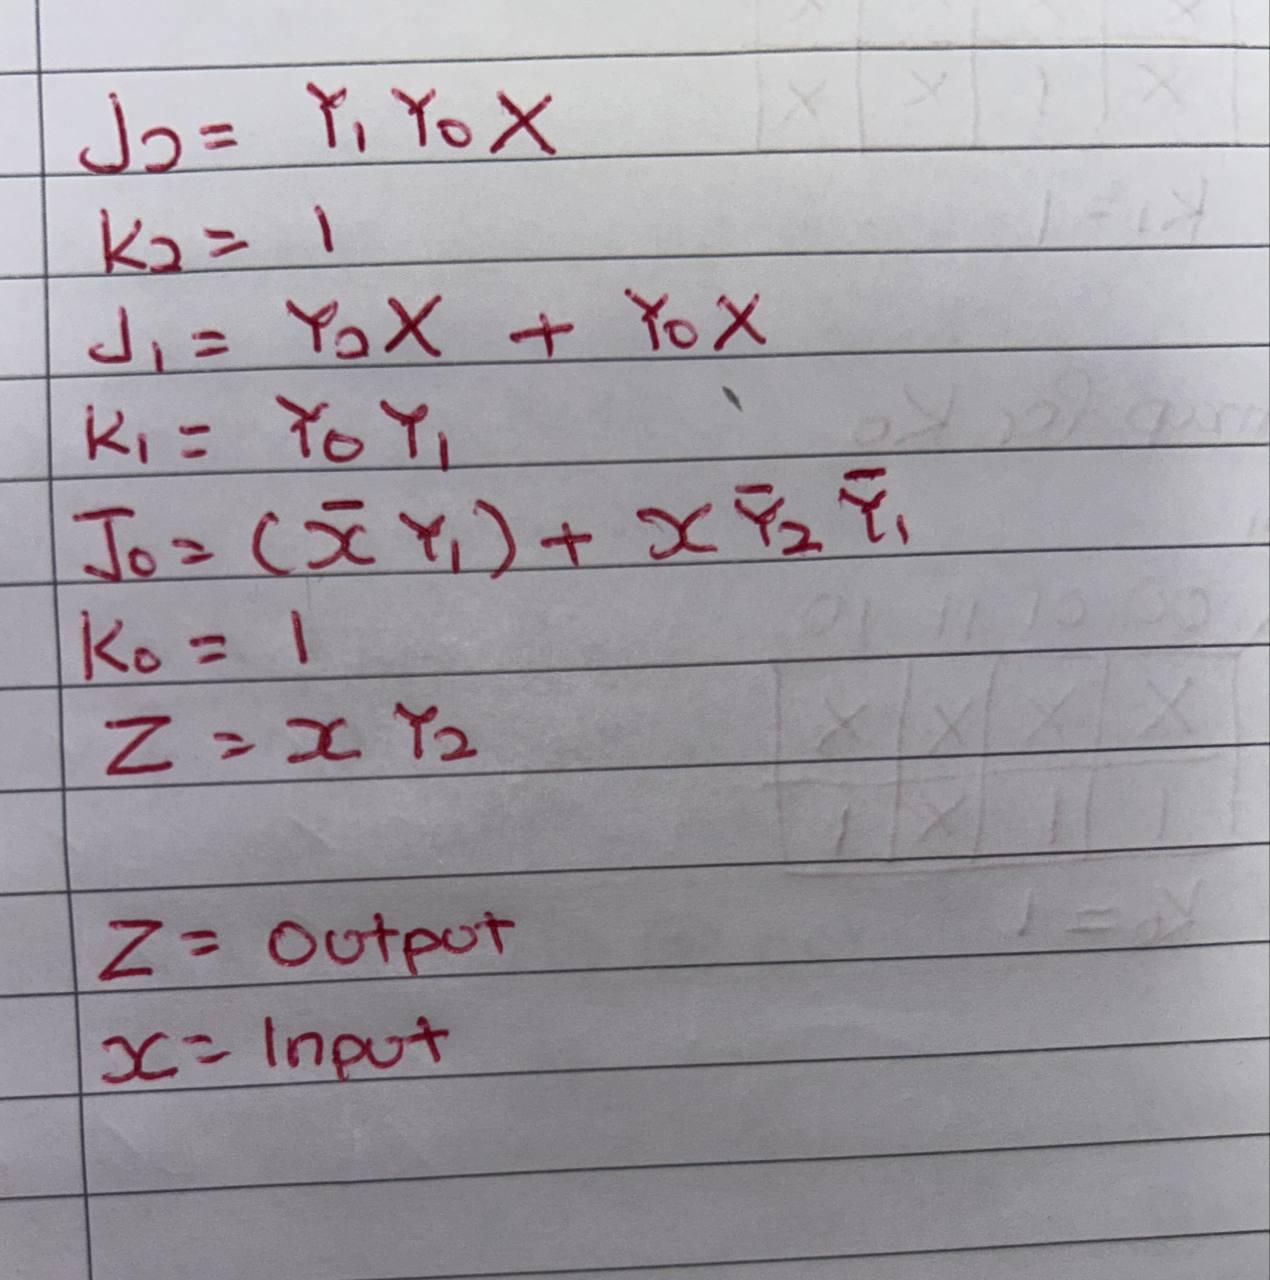 J2 = Y1 Y0 X
K2 = 1
J1 = Y2 X + Y0 X
K1 = Y0 Y1
J0 = (x̄ Y1) + x Ȳ2 Ȳ1
K0 = 1
Z = x Y2
Z = Output
x = Input